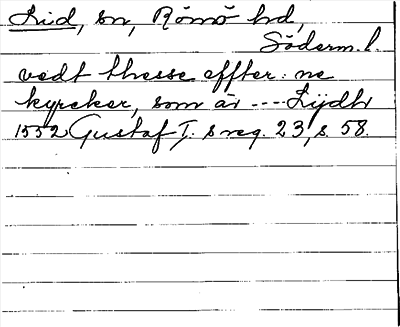 Lid, sn, Rönö hd,
Söderm. l.
vedt thesse effter: ne
kyrcker, som är ---- Lijdh
1552 Gustaf I:s reg. 23, s. 58.